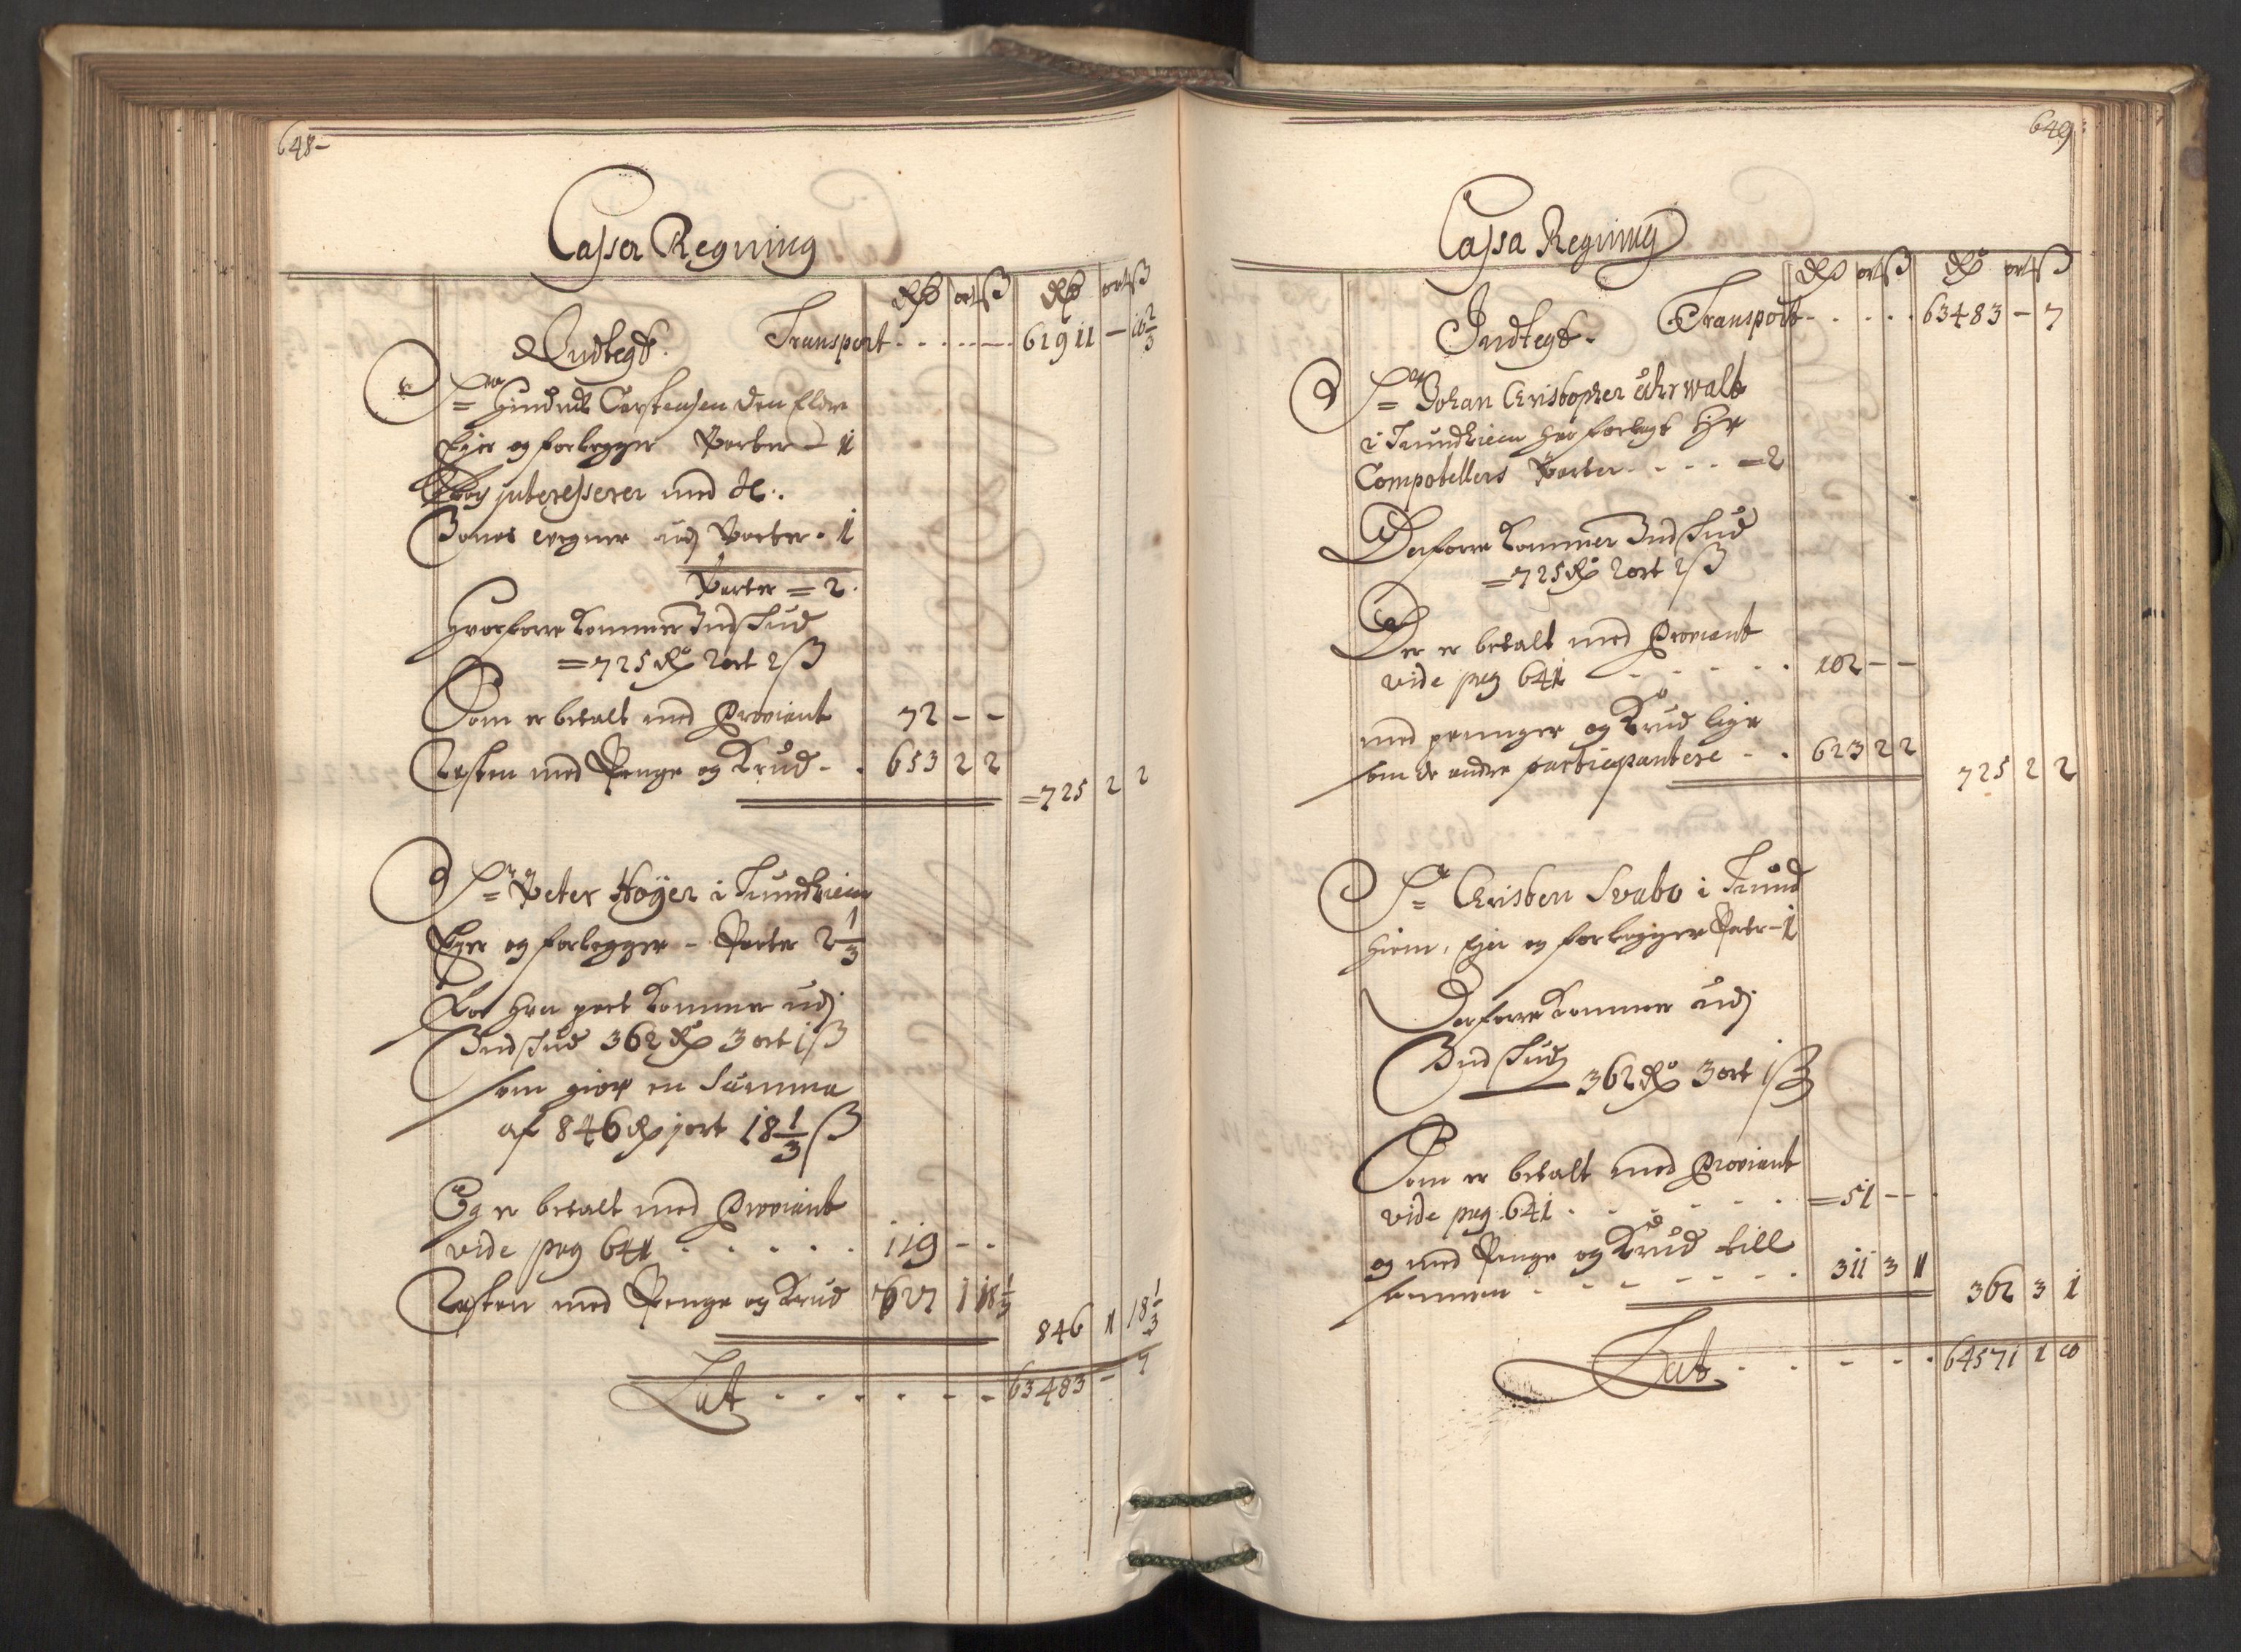 648-
Cassa Regning
Rdr ort ß Rdr ort ß
Indtegt. Transport - - - 61911 - 16 2/3
Sr Hindrick Carstensen den Eldre
Ejer og forlegger Parter - 1
Og interesserer med Sl:
Jonas wegner udj Parter - 1
Parter = 2
Hvorforre kommer Indskud
= 725 Rdr 2 ort 2 ß
Som er betalt med Proviant 72 - -
Resten med Penge og Krud - - 653 2 2
= 725 2 2
Sr Peter Höyer i Trundhiem
Ejer og forlegger - Parter 2 1/3
For hver part kommer udj
Indskud 362 Rdr 3 ort 1 ß
som giør en Summa
af 846 Rdr 1 ort 18 1/3 ß
Og er betalt med Proviant
vide pag 641 - - - - - 119 - -
Resten med Penge og Krud 727 1 18 1/3
846 1 18 1/3
Lat - - - - - - 63483 - 7
649
Cassa Regning
Rdr ort ß Rdr ort ß
Indtegt. Transport - - - - 63483 - 7
Sr Johan Christopher Uhrwalt
i Trundhiem har forlagt Hr
Compotellers Parter - - - - = 2
Derforre kommer Indskud
= 725 Rdr 2 ort 2 ß
Der er betalt med Proviant
vide pag 641 - - - - - 102 - -
med penninger og Krud lige
som de andre participantere - - 623 2 2
725 2 2
Sr Christen Svabo i Trund
hiem, Ejer og forlegger Parter - 1
Derforre kommer udj
Indskud 362 Rdr 3 ort 1 ß
Som er betalt med Proviant
vide pag 641 - - - - - = 51 - -
og med Penge og Krud till
sammen - - - - - - 311 3 1
362 3 1
Lat - - - - - 64571 1 10